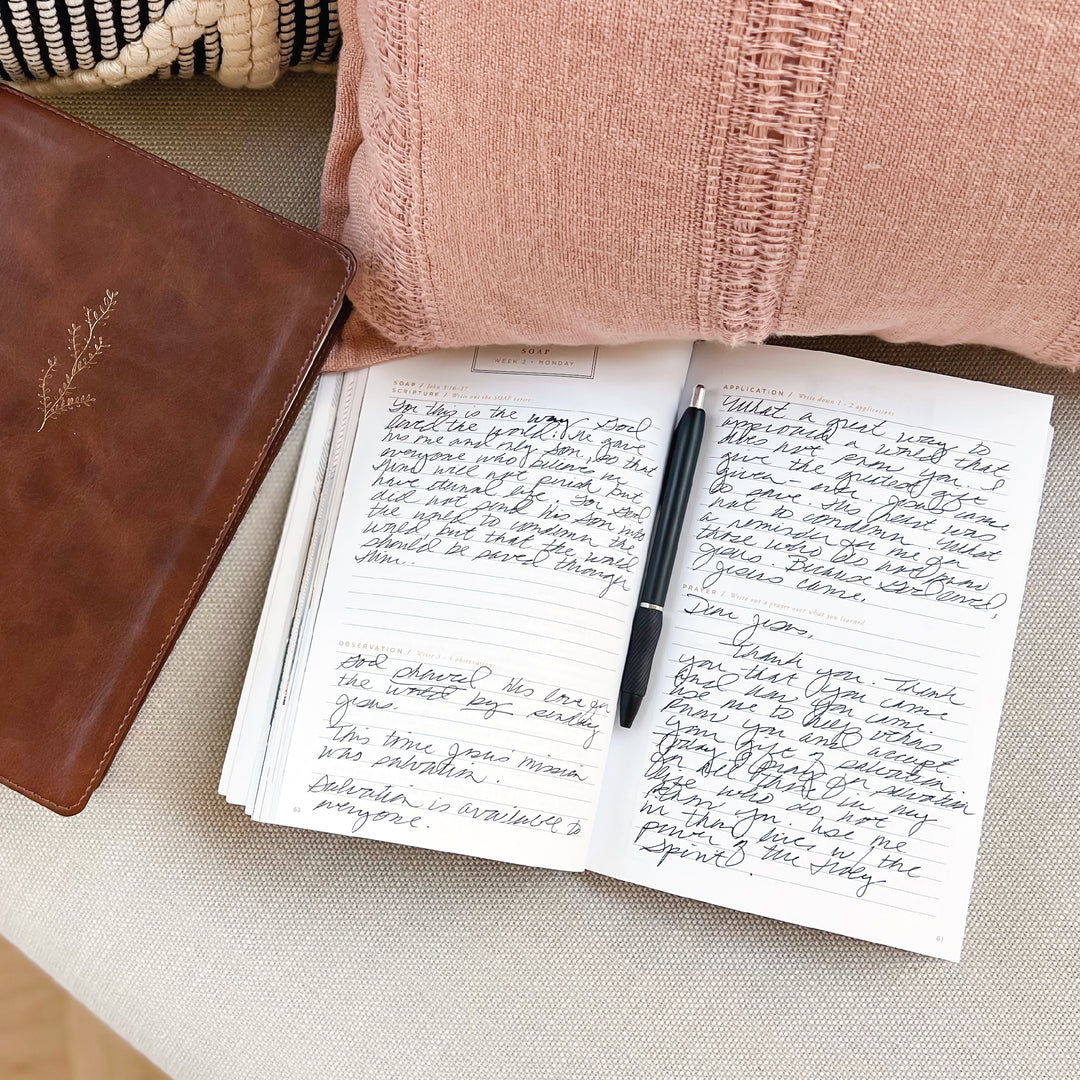 SOAP
WEEK 2 • MONDAY
SOAP / John 3:16-17
SCRIPTURE / Write out the SOAP verses
For this is the way God
loved the world: He gave
his one and only Son, so that
everyone who believes in
Him will not perish but
have eternal life. For God
did not send his Son into
the world to condemn the
world, but that the world
should be saved through
Him.
OBSERVATION / Write 3 - 4 observations
God showed His love for
the world by sending
Jesus.
This time Jesus' mission
was salvation.
Salvation is available to
everyone.
60
APPLICATION / Write down 1 - 2 applications
What a great way to
approach a world that
does not know you. I
give the greatest gift
given - ever. Jesus came
to save. His heart was
not to condemn. What
a reminder for me for
those who do not know
Jesus. Because God loved,
Jesus came.
PRAYER / Write out a prayer over what you learned
Dear Jesus,
Thank you. Thank
you that you came
and how you came.
Use me to help others
know you and accept
your gift of salvation.
Today I pray for salvation
for all those in my
life who do not
know you. Use me
in their lives in the
power of the Holy
Spirit.
61